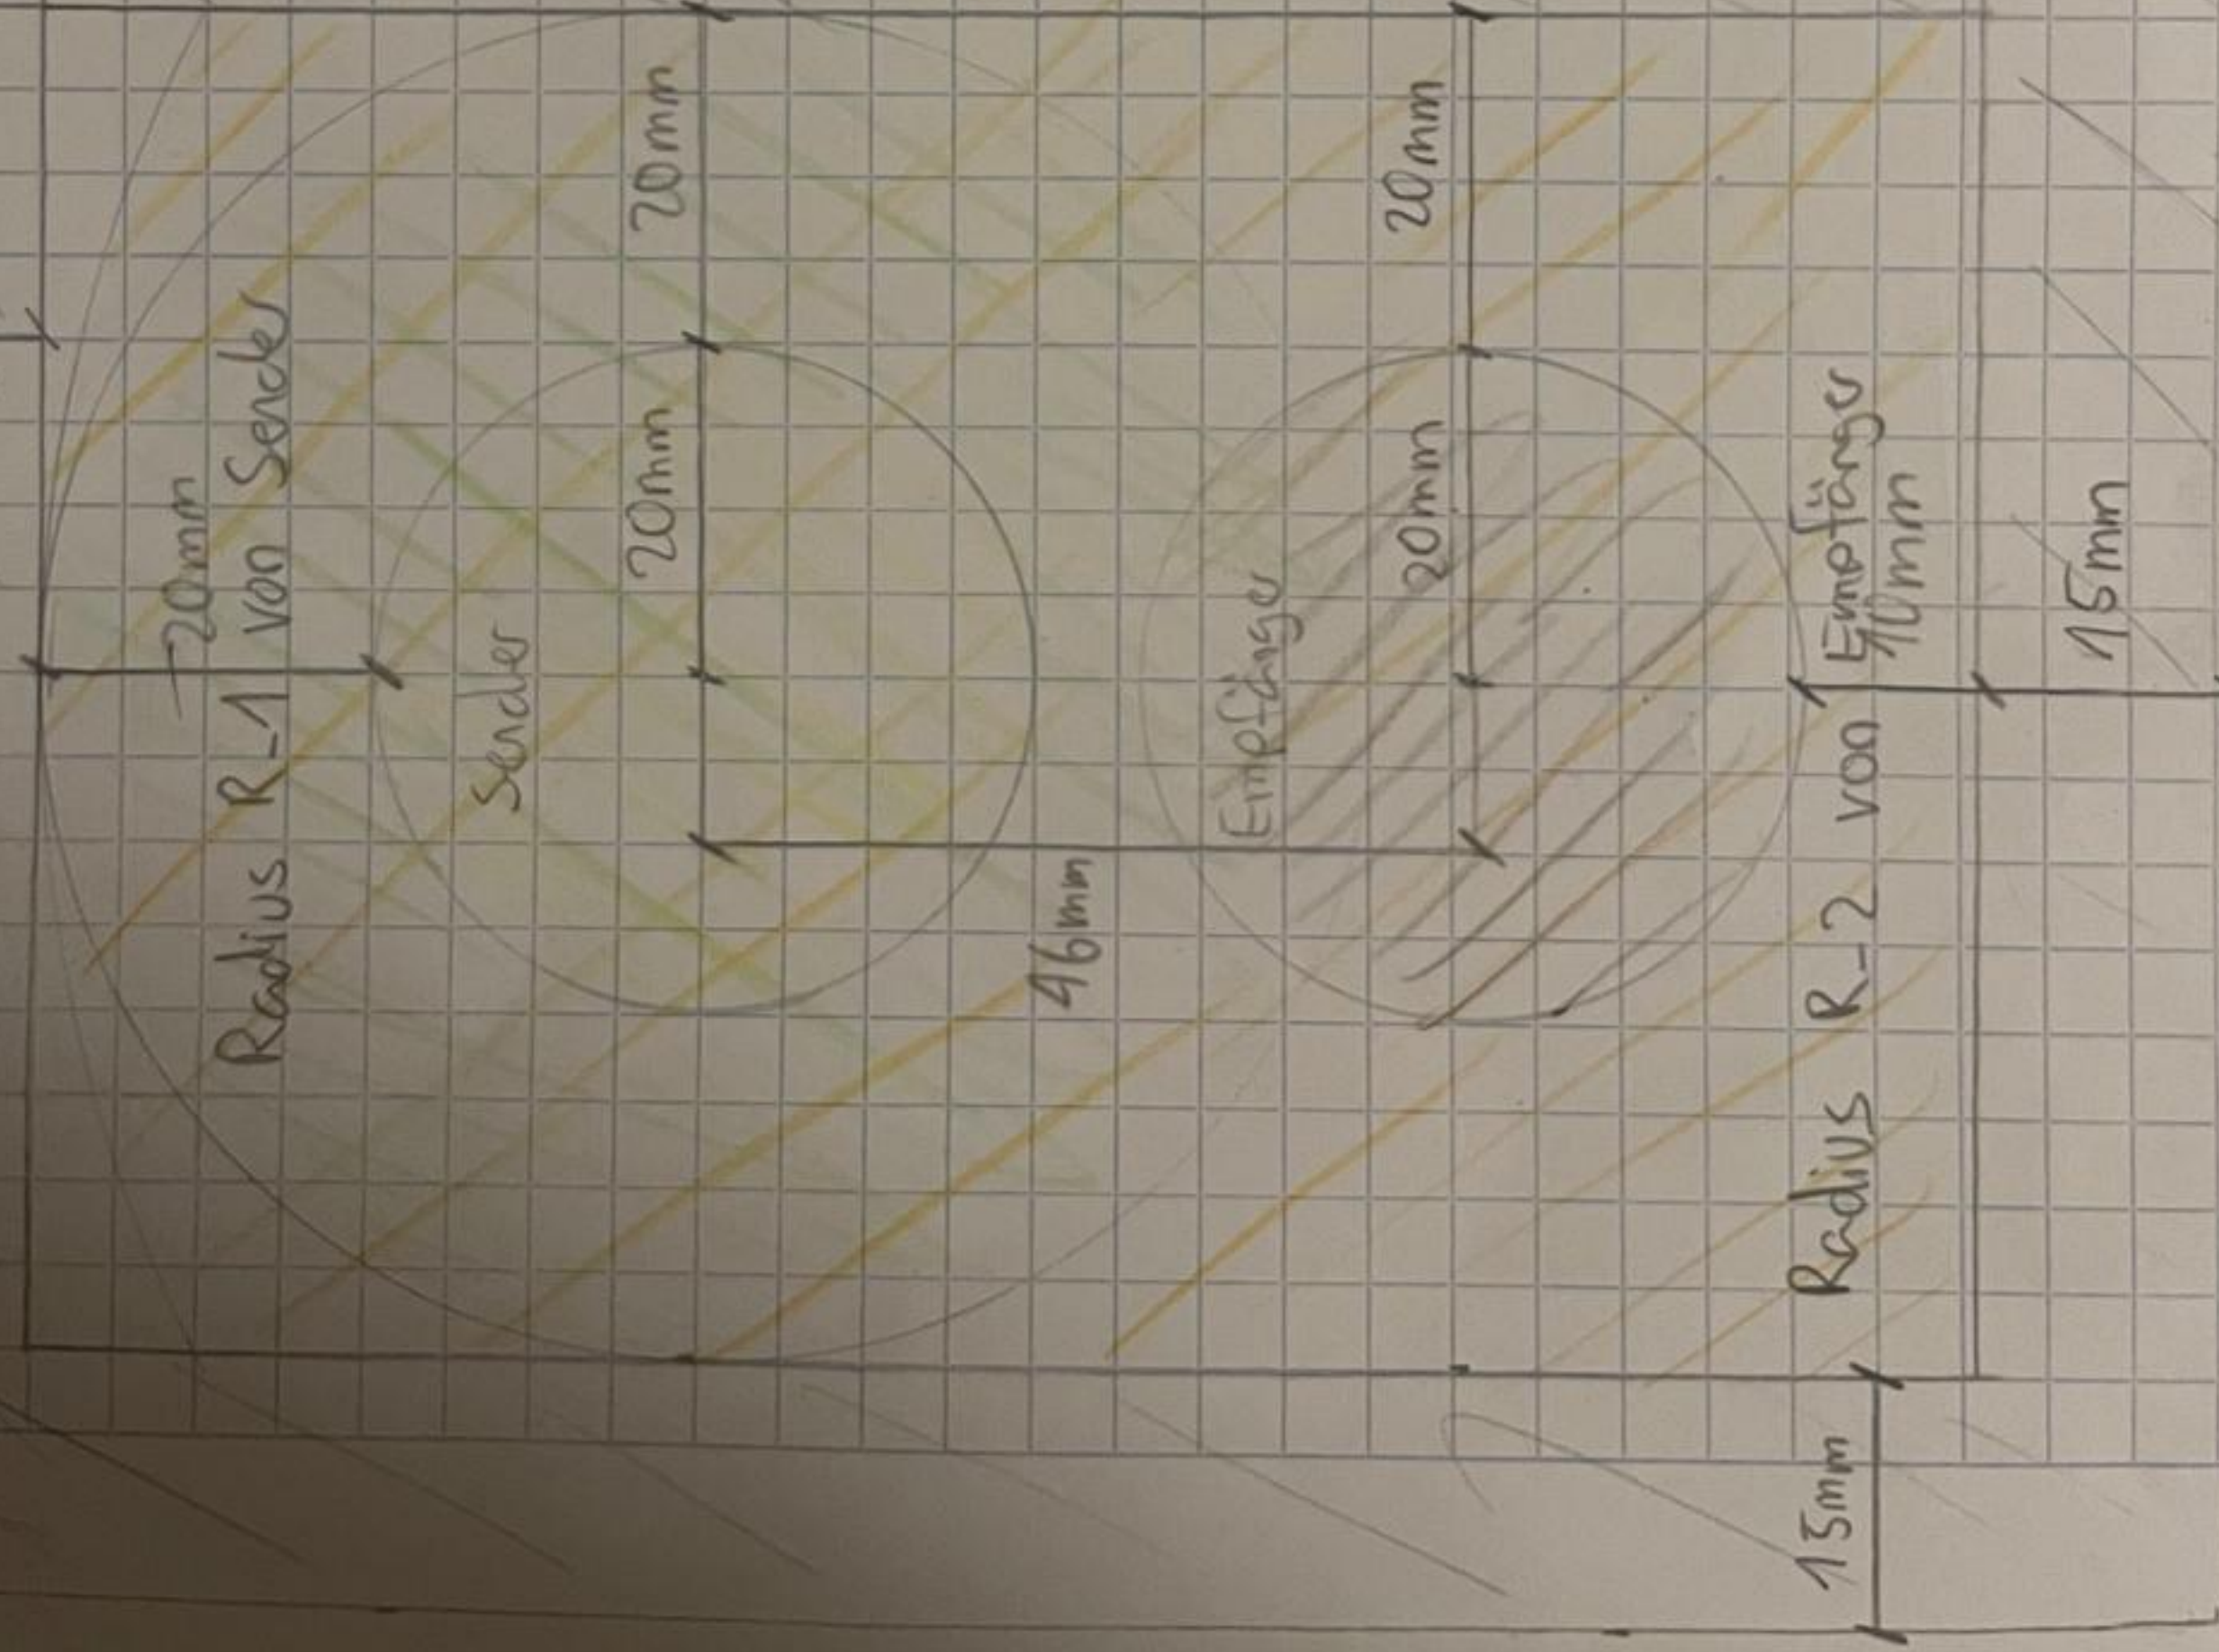 20mm
Radius R_1 von Sender
Sender
20mm 20mm
46mm
Empfänger
20mm 20mm
15mm Radius R_2 von Empfänger
10mm
15mm